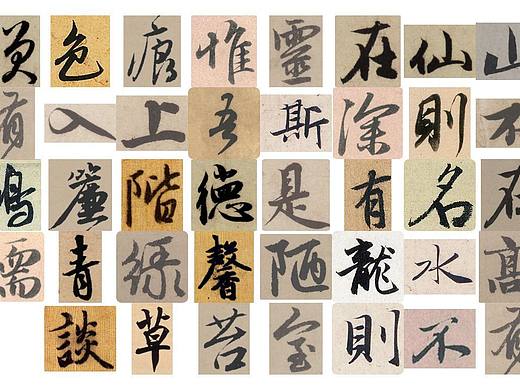 山不在高有
仙則名水不
在深有龍則
靈斯是陋室
惟吾德馨苔
痕上階綠草
色入簾青談
笑有鴻儒